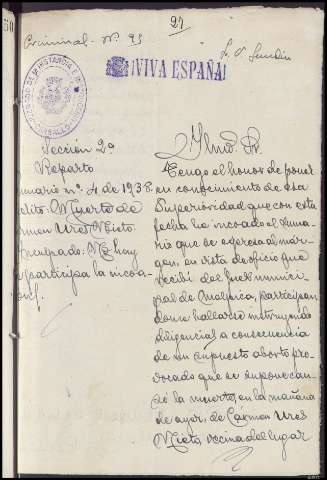 27
Criminal - Nº 93
¡VIVA ESPAÑA!
Sección 2ª
Reparto
umario nº 4 de 1938
elito: Muerte de
rmen Ures Nieto
nculpado: No hay
participa la incoa-
Ilmo Sr.
Tengo el honor de poner
en conocimiento de esa
Superioridad que con esta
fecha he incoado el suma-
rio que se expresa al mar-
gen, en vista de oficio que
recibí del Juez munici-
pal de Malpica, participan-
dome hallarse instruyendo
diligencias a consecuencia
de un supuesto aborto pro-
vocado que se supone cau-
só la muerte, en la mañana
de ayer, de Carmen Ures
Nieto, vecina del lugar